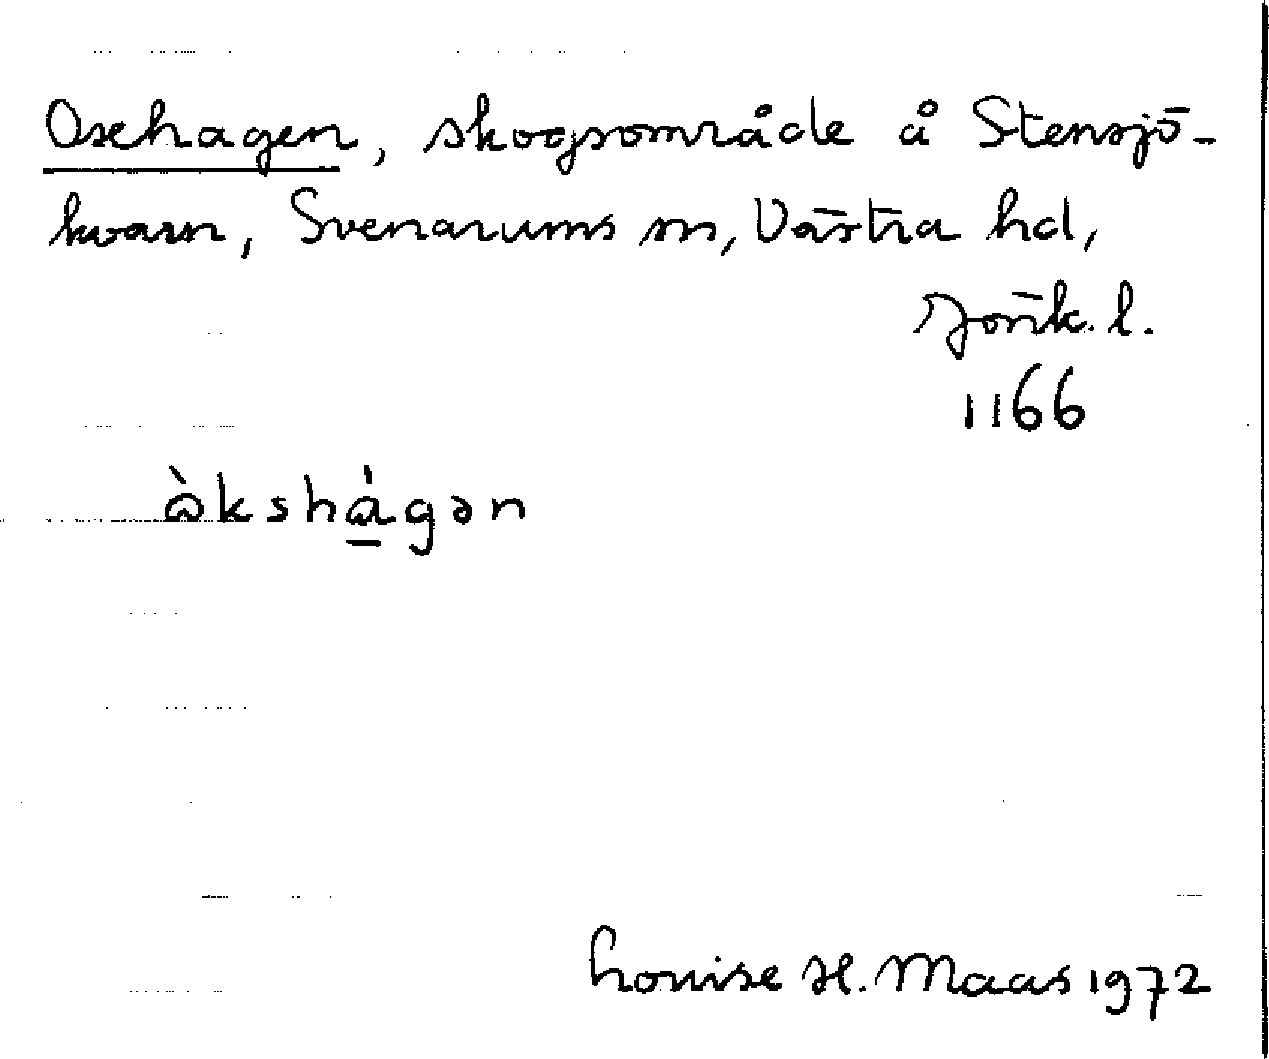 Oxehagen, skogsområde å Stensjö-
kvarn, Svenarums sn, Västra hd,
Jönk. l.
1166
òkshágən
Louise H. Maas 1972